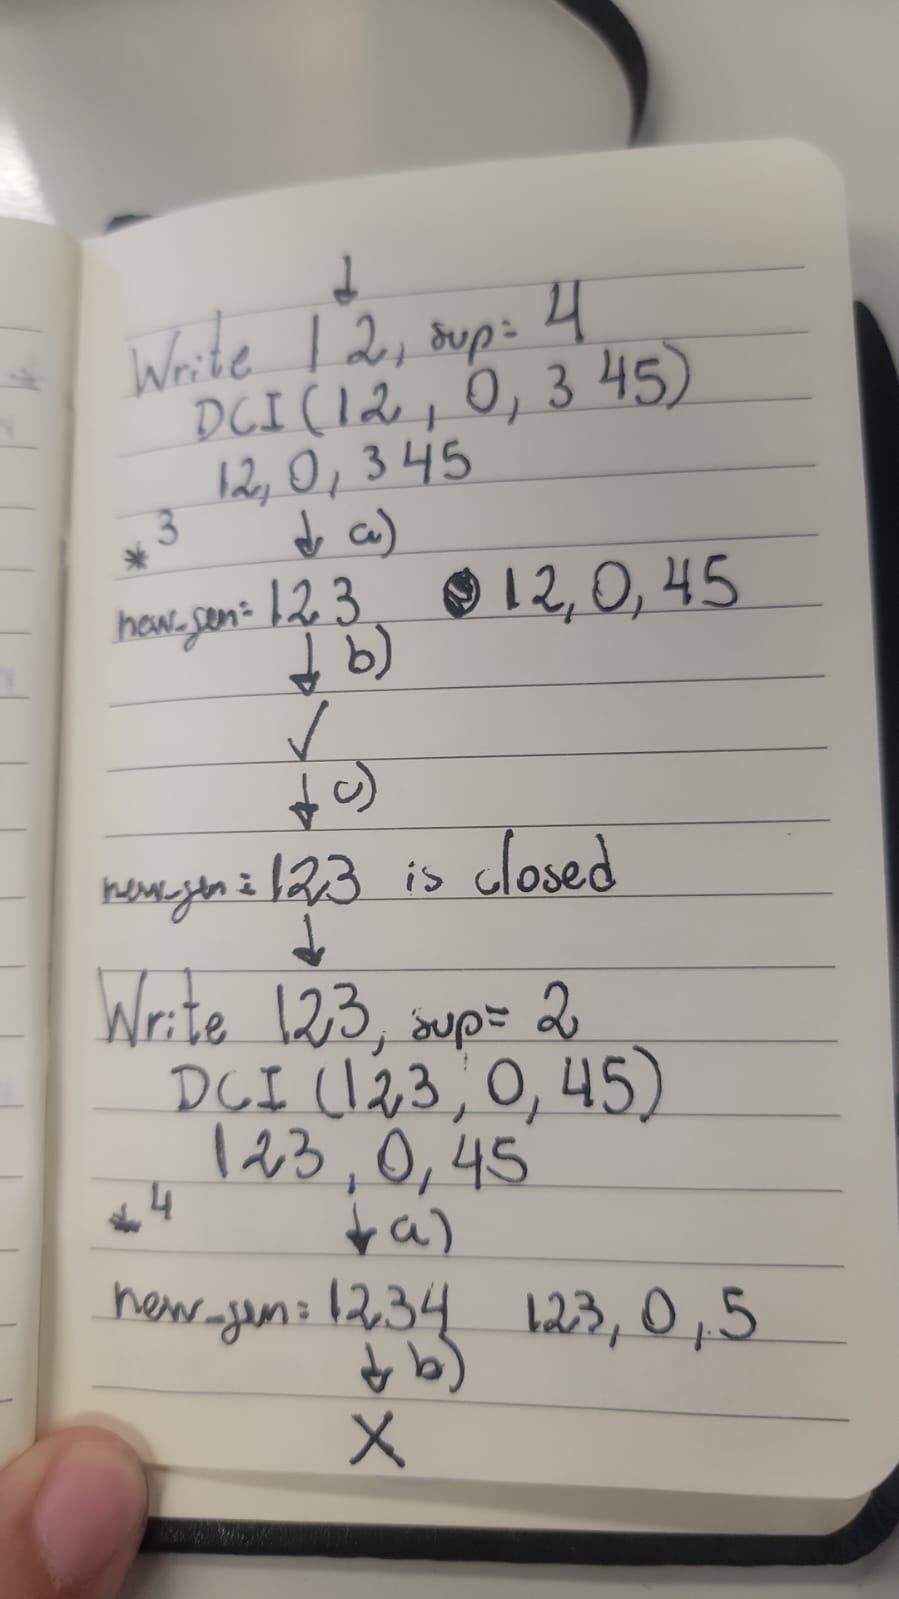 ↓
Write 12, sup= 4
DCI(12, 0, 345)
12, 0, 345
*3 ↓ a)
new_gen= 123 12, 0, 45
↓ b)
✓
↓ c)
new_gen= 123 is closed
↓
Write 123, sup= 2
DCI (123, 0, 45)
123, 0, 45
*4 ↓ a)
new_gen= 1234 123, 0, 5
↓ b)
X